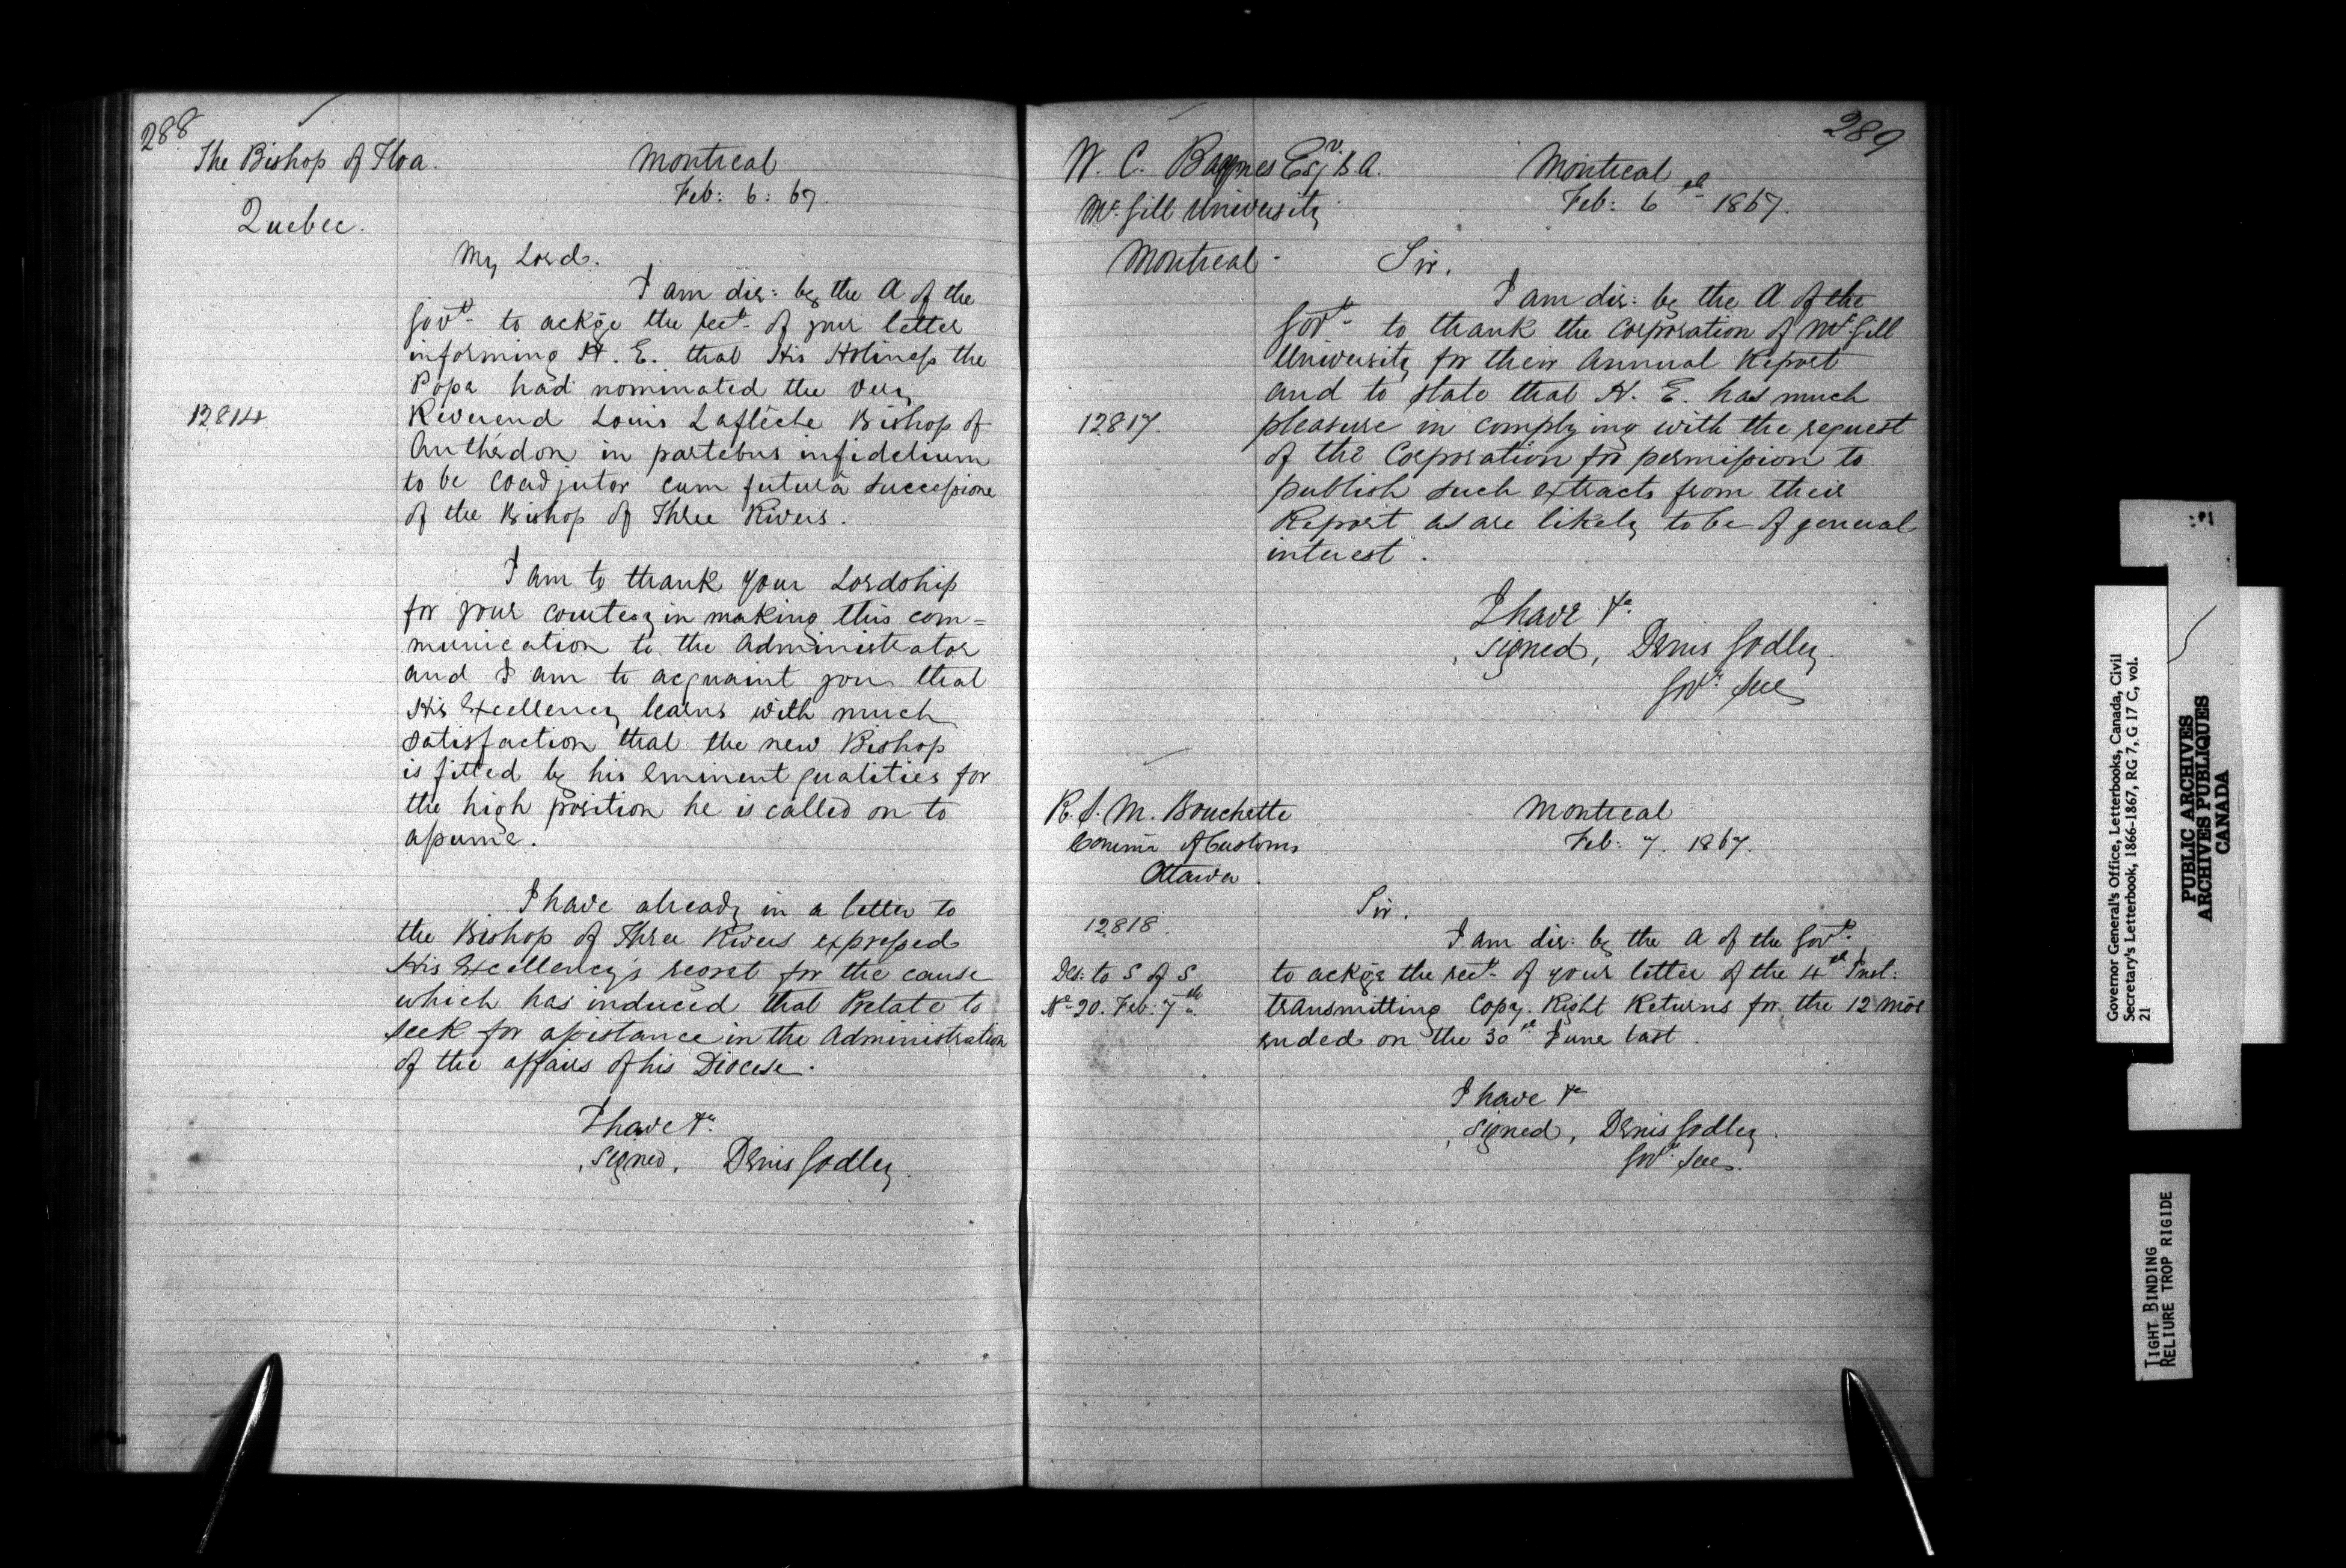 288
The Bishop of Tloa.
Quebec.
Montreal
Feb: 6: 67.
My Lord.
I am dir: by the A of the
Govt. to ackge the rect. of your letter
informing H. E. that His Holiness the
Pope had nominated the Very
12814
Reverend Louis Laflèche Bishop of
Anthédon in partebus infidelium
to be Coadjutor cum futurâ successione
of the Bishop of Three Rivers.
I am to thank your Lordship
for your courtesy in making this com=
munication to the Administrator
and I am to acquaint you that
His Excellency learns with much
satisfaction that the new Bishop
is fitted by his Eminent qualities for
the high position he is called on to
assume.
I have already in a letter to
the Bishop of Three Rivers expressed
His Excellency's regret for the cause
which has induced that Prelate to
seek for assistance in the Administration
of the affairs of his Diocese.
I have &c.
signed, Denis Godley.
289
W. C. Baynes Esqr. B.A.
McGill University
Montreal
Montreal
Feb: 6th 1867.
Sir,
I am dir: by the A of the
Govt. to thank the Corporation of McGill
University for their Annual Report
and to state that H. E. has much
12817.
pleasure in complying with the request
of the Corporation for permission to
publish such extracts from their
Report as are likely to be of general
interest.
I have &c.
signed, Denis Godley.
Govr. Secy
R. S. M. Bouchette
Commr of Customs
Ottawa.
Montreal
Feb: 7. 1867.
Sir.
12818.
I am dir: by the A of the Govt.
Des: to S of S
No. 20. Feb: 7th.
to ackge the rect. of your letter of the 4th Inst:
transmitting Copy Right Returns for the 12 mos
ended on the 30th June last.
I have &c
signed, Denis Godley.
Govr. Secy.
Governor General's Office, Letterbooks, Canada, Civil
Secretary's Letterbook, 1866-1867, RG 7, G 17 C, vol.
21
PUBLIC ARCHIVES
ARCHIVES PUBLIQUES
CANADA
TIGHT BINDING
RELIURE TROP RIGIDE